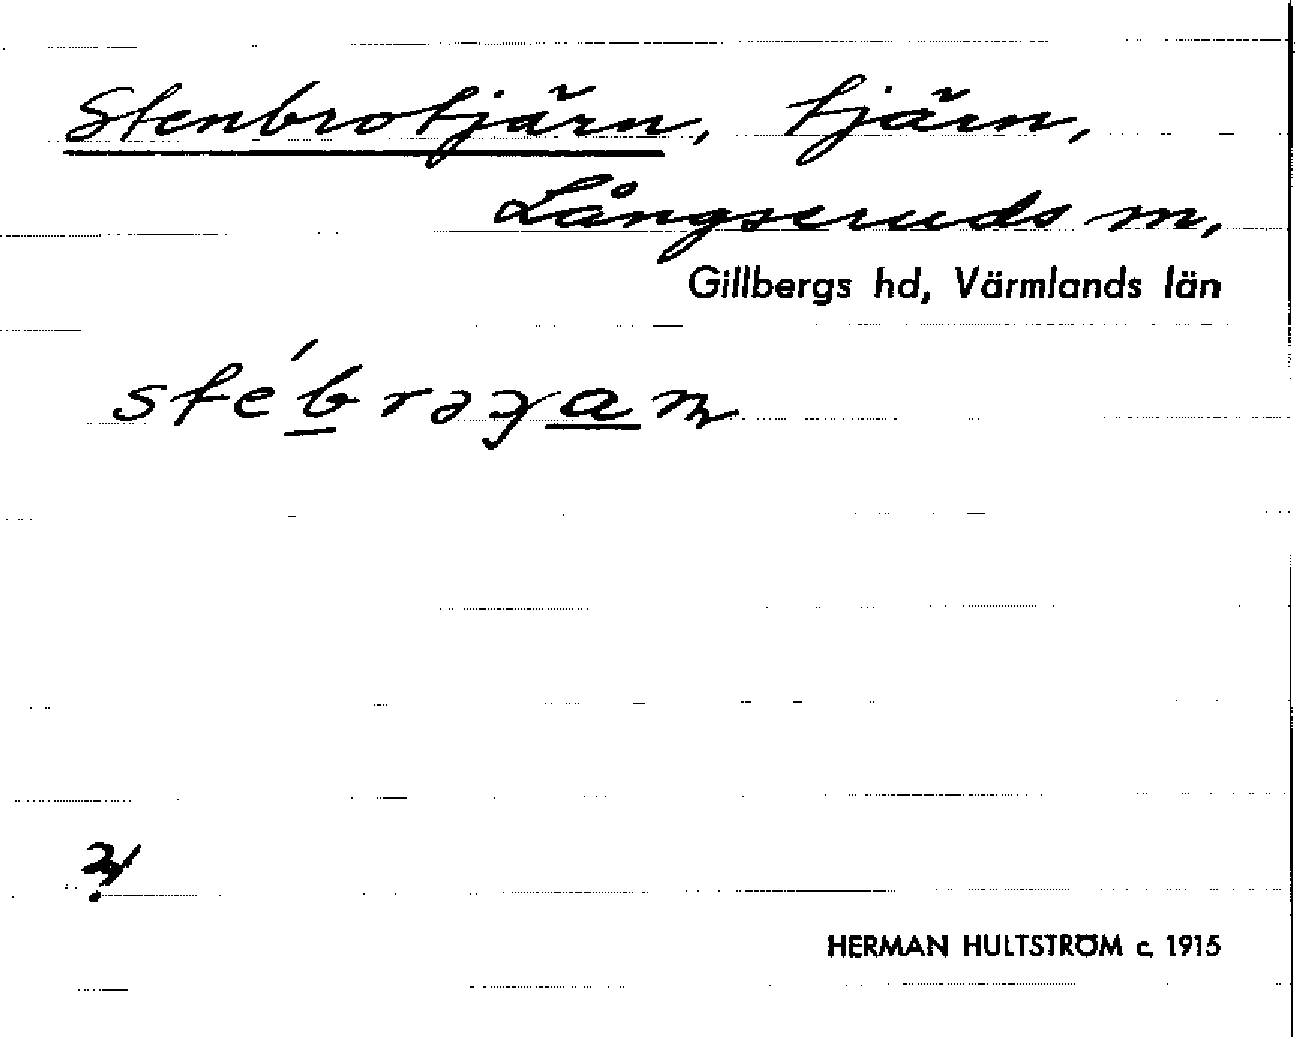 Stenbrotjärn, tjärn,
Långseruds m,
Gillbergs hd, Värmlands län
HERMAN HULTSTRÖM c. 1915